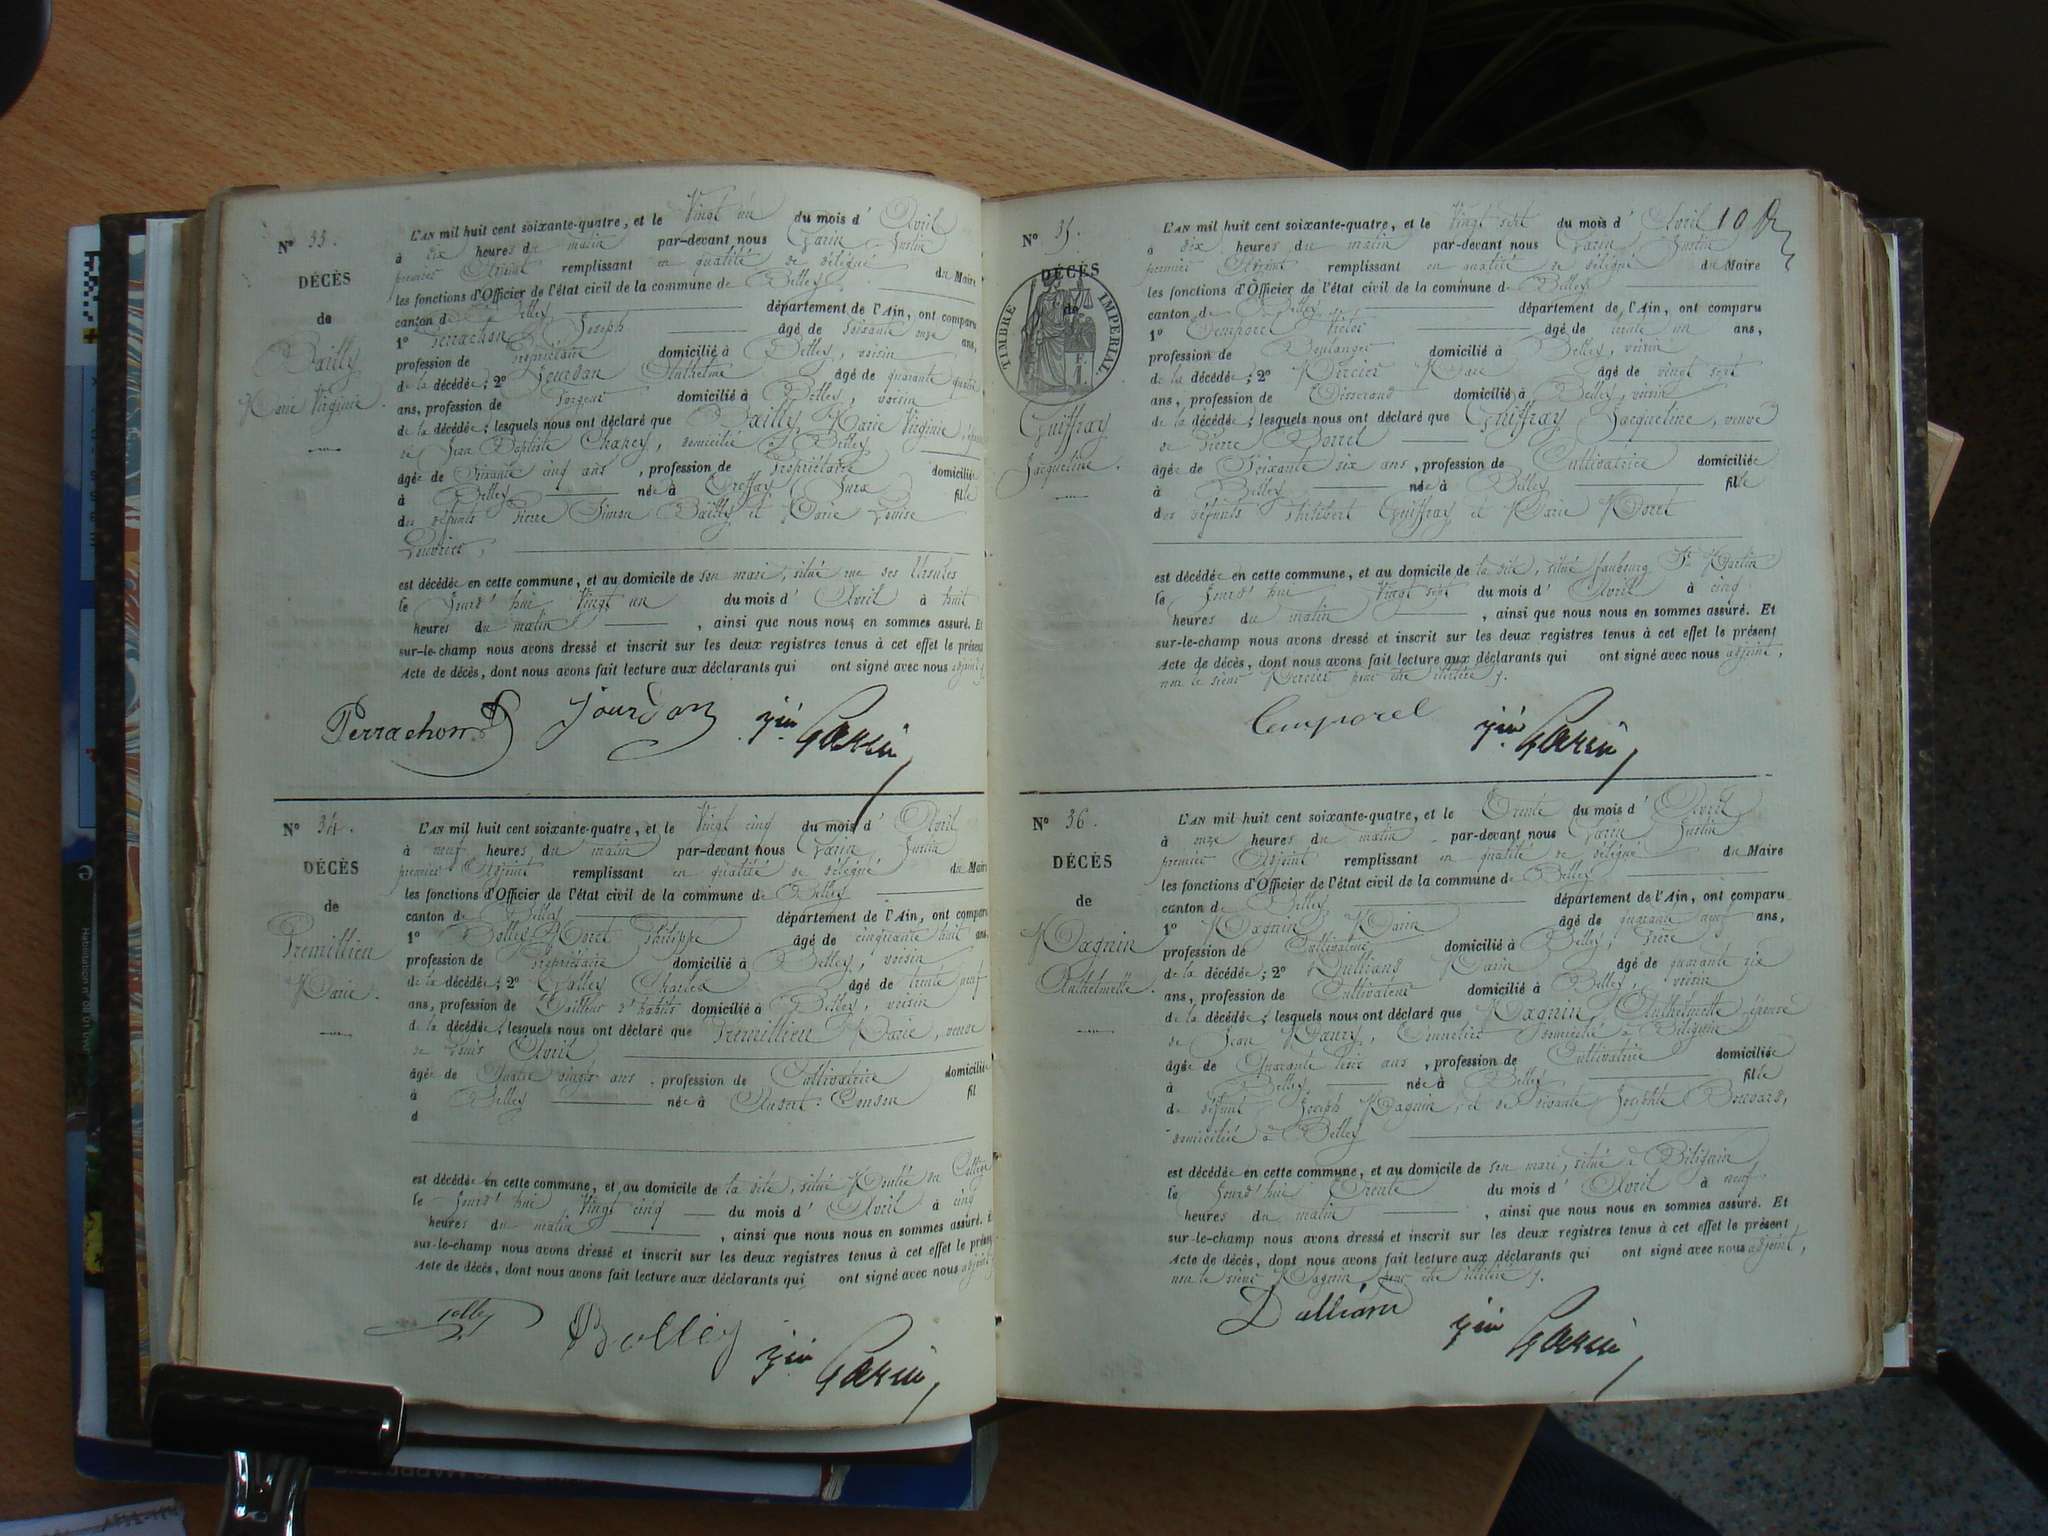 N° 33.
DÉCÈS
de
Bailly
Marie Virginie.
L'AN mil huit cent soixante-quatre, et le Vingt un du mois d'Avril
à dix heures du matin par-devant nous Garin Justin
premier Adjoint remplissant en qualité de délégué du Maire
les fonctions d'Officier de l'état civil de la commune de Belley
canton de Belley département de l'Ain, ont comparu
1° Perrachon Joseph âgé de soixante onze ans,
profession de Propriétaire domicilié à Belley, voisin
de la décédée; 2° Jourdan Anthelme âgé de quarante quatre
ans, profession de domicilié à Belley, voisin
de la décédée; lesquels nous ont déclaré que Bailly Marie Virginie, épouse
de Jean Baptiste Chapey, domicilié à Belley
âgée de Soixante cinq ans, profession de Propriétaire domiciliée
à Belley née à Treffay (Jura) fille
des défunts Pierre Simon Bailly et Marie Louise
Louvrier,
est décédée en cette commune, et au domicile de son mari, situé rue des Ursules
le Jourd'hui Vingt un du mois d'Avril à huit
heures du matin, ainsi que nous nous en sommes assuré. Et
sur-le-champ nous avons dressé et inscrit sur les deux registres tenus à cet effet le présent
Acte de décès, dont nous avons fait lecture aux déclarants qui ont signé avec nous adjoint
Perrachon Jourdan Garin
N° 34.
DÉCÈS
de
Premillien
Marie.
L'AN mil huit cent soixante-quatre, et le Vingt cinq du mois d'Avril
à neuf heures du matin par-devant nous Garin Justin
premier Adjoint remplissant en qualité de délégué du Maire
les fonctions d'Officier de l'état civil de la commune de Belley
canton de Belley département de l'Ain, ont comparu
1° Bolley Moret Philippe âgé de cinquante huit ans,
profession de Propriétaire domicilié à Belley, voisin
de la décédée; 2° Charles âgé de trente neuf
ans, profession de Tailleur d'habits domicilié à Belley, voisin
de la décédée; lesquels nous ont déclaré que Premillien Marie, veuve
de Louis Avril
âgée de Quatre vingts ans, profession de Cultivatrice domiciliée
à Belley née à fil
d
est décédée en cette commune, et au domicile de la dite, situé Montée du Collège
le Jourd'hui Vingt cinq du mois d'Avril à cinq
heures du matin, ainsi que nous nous en sommes assuré. Et
sur-le-champ nous avons dressé et inscrit sur les deux registres tenus à cet effet le présent
Acte de décès, dont nous avons fait lecture aux déclarants qui ont signé avec nous adjoint
Bolley Garin
10
N° 35.
DÉCÈS
de
TIMBRE IMPERIAL
Guiffray
Jacqueline.
L'AN mil huit cent soixante-quatre, et le Vingt sept du mois d'Avril
à dix heures du matin par-devant nous Garin Justin
premier Adjoint remplissant en qualité de délégué du Maire
les fonctions d'Officier de l'état civil de la commune de Belley
canton de Belley département de l'Ain, ont comparu
1° Temporel Victor âgé de trente un ans,
profession de Boulanger domicilié à Belley, voisin
de la décédée; 2° Mercier Marc âgé de vingt sept
ans, profession de Tisserand domicilié à Belley, voisin
de la décédée; lesquels nous ont déclaré que Guiffray Jacqueline, veuve
de Pierre Borrel
âgée de Soixante six ans, profession de Cultivatrice domiciliée
à Belley née à Belley fille
des défunts Philibert Guiffray et Marie Moret
est décédée en cette commune, et au domicile de la dite, situé faubourg St Martin
le Jourd'hui Vingt sept du mois d'Avril à cinq
heures du matin, ainsi que nous nous en sommes assuré. Et
sur-le-champ nous avons dressé et inscrit sur les deux registres tenus à cet effet le présent
Acte de décès, dont nous avons fait lecture aux déclarants qui ont signé avec nous adjoint,
non le sieur Mercier pour être illitéré
Temporel Garin
N° 36.
DÉCÈS
de
Magnin
Anthelmette.
L'AN mil huit cent soixante-quatre, et le Trente du mois d'Avril
à onze heures du matin par-devant nous Garin Justin
premier Adjoint remplissant en qualité de délégué du Maire
les fonctions d'Officier de l'état civil de la commune de Belley
canton de Belley département de l'Ain, ont comparu
1° Magnin Marin âgé de quarante neuf ans,
profession de Cultivateur domicilié à Belley, frère
de la décédée; 2° Dulliand Marin âgé de quarante six
ans, profession de Cultivateur domicilié à Belley, voisin
de la décédée; lesquels nous ont déclaré que Magnin Anthelmette épouse
de Jean Maury, Tonnelier domicilié à Bilignin
âgée de Quarante trois ans, profession de Cultivatrice domiciliée
à Belley née à Belley fille
de défunt Joseph Magnin, et de vivante Josephte Bouvard,
domiciliée à Belley
est décédée en cette commune, et au domicile de son mari, situé à Bilignin
le Jourd'hui Trente du mois d'Avril à neuf
heures du matin, ainsi que nous nous en sommes assuré. Et
sur-le-champ nous avons dressé et inscrit sur les deux registres tenus à cet effet le présent
Acte de décès, dont nous avons fait lecture aux déclarants qui ont signé avec nous adjoint,
non le sieur Magnin pour être illitéré
Dulliand Garin